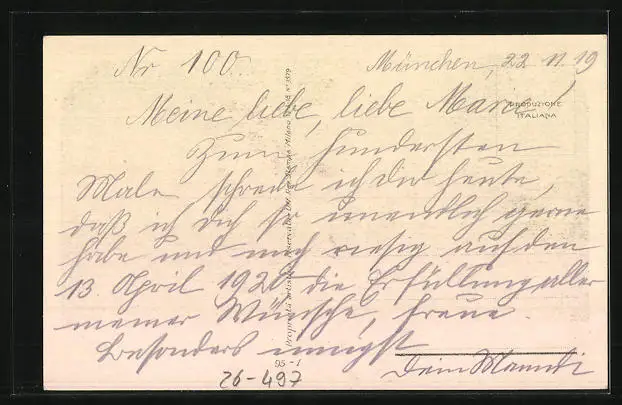 Nr 100.
München, 22. 11. 19
Meine liebe, liebe Maria!
PRODUZIONE
ITALIANA
Zum hundertsten
Male schreib ich dir heute,
daß ich dich so unendlich gerne
habe und mich riesig auf den
13. April 1920 die Erfüllung aller
meiner Wünsche, freue.
Besonders innigst
Dein
95 - 1
26-497
Proprietà artistica riservata